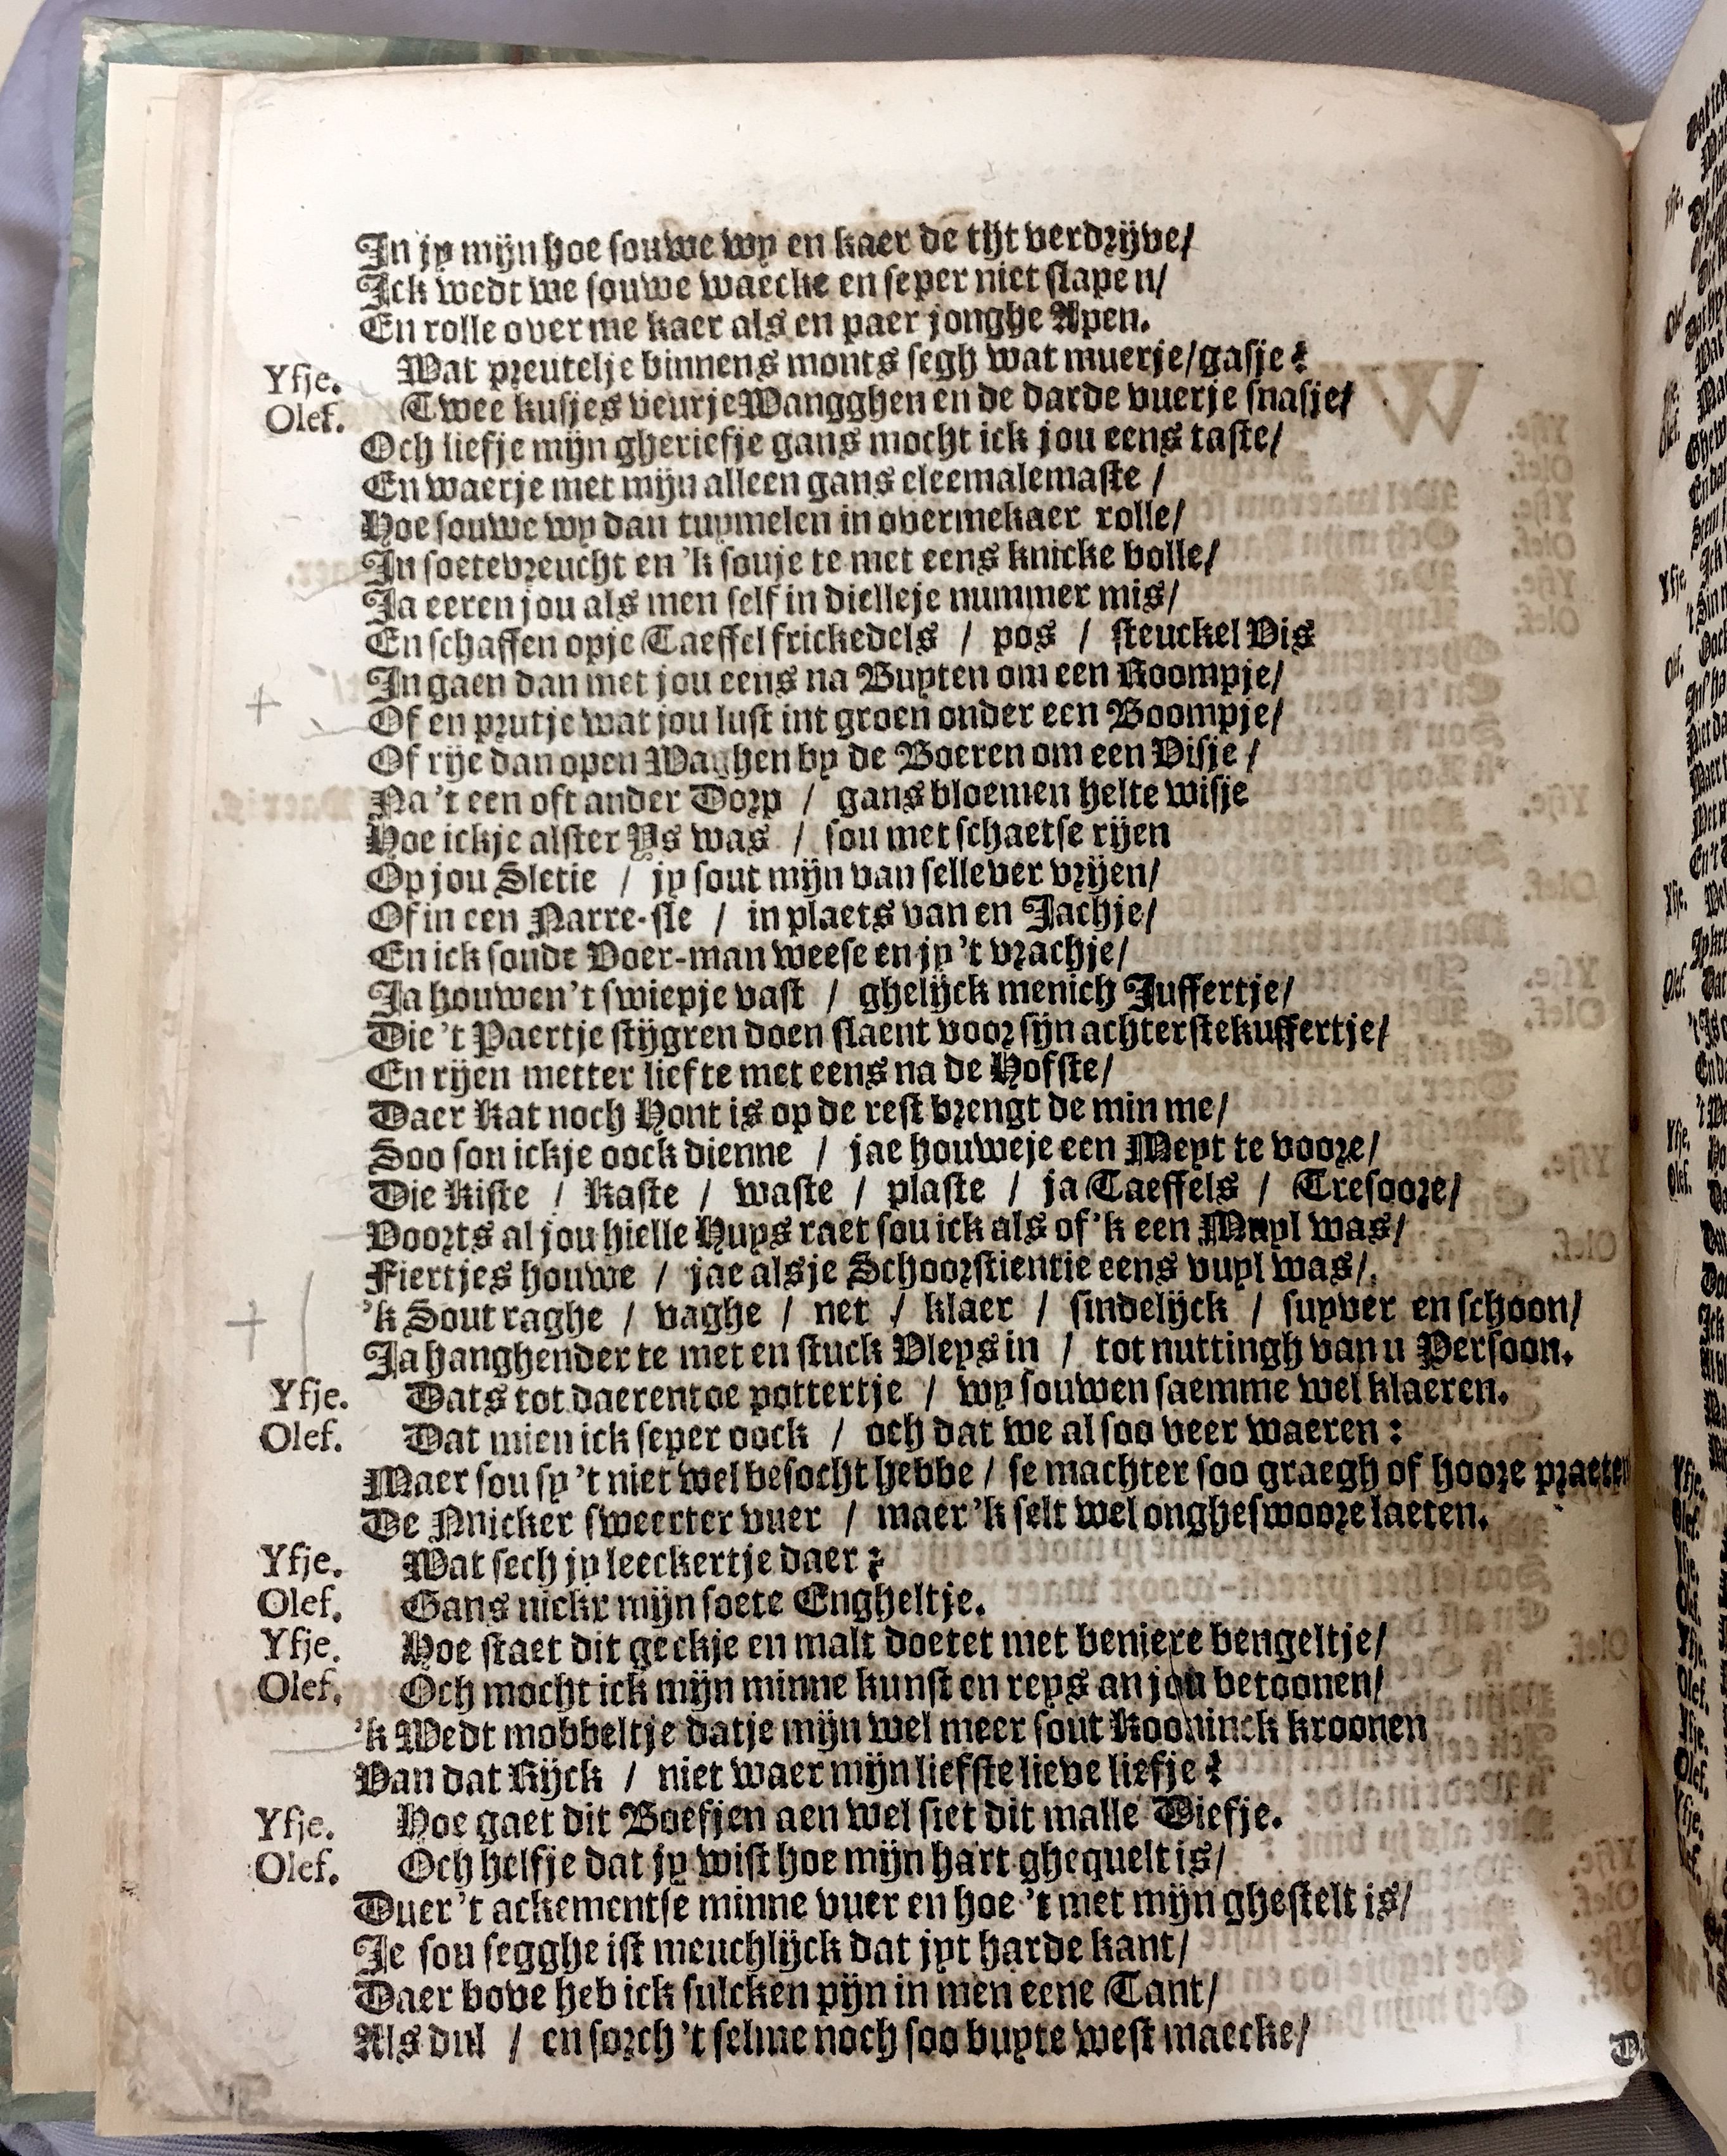 In jy mijn hoe souwe wy en kaer de tijt verdrijve/
Ick wedt we souwe waecke en seper niet slapen/
En rolle over me kaer als en paer jonghe Apen.
Yfje. Wat preutelje binnens monts segh wat muerje/gasje?
Olef. Twee kusjes veurje Wangghen en de darde vuerje snasje/
Och liefje mijn gheriefje gans mocht ick jou eens taste/
En waerje met mijn alleen gans eleemalemaste /
Hoe souwe wy dan tuymelen in overmekaer rolle/
In soetevreucht en 'k souje te met eens knicke bolle/
Ja eeren jou als men self in dielleje nummer mis/
En schaffen opje Taeffel frickedels / pos / steuckel Vis
In gaen dan met jou eens na Buyten om een Roompje/
Of en prutje wat jou lust int groen onder een Boompje/
Of rije dan open Waghen by de Boeren om een Visje /
Na 't een oft ander Dorp / gans bloemen helte wisje
Hoe ickje alster Ys was / sou met schaetse rijen
Op jou Sletie / jy sout mijn van sellever vrijen/
Of in een Narre-sle / in plaets van en Jachje/
En ick soude Voer-man weese en jy 't vrachje/
Ja houwen 't swiepje vast / ghelijck menich Juffertje/
Die 't Paertje stijgren doen slaent voor sijn achterstekuffertje/
En rijen metter liefte met eens na de Hofste/
Daer Kat noch Hont is op de rest brengt de min me/
Soo sou ickje oock dienne / jae houweje een Meyt te voore/
Die Kiste / Kaste / waste / plaste / ja Taeffels / Tresoore/
Voorts al jou hielle Huys raet sou ick als of 'k een Muyl was/
Fiertjes houwe / jae alsje Schoorstientie eens vuyl was/.
'k Sout raghe / vaghe / net / klaer / sindelijck / suyver en schoon/
Ja hanghender te met en stuck Vleys in / tot nuttingh van u Persoon.
Yfje. Dats tot daerentoe pottertje / wy souwen saemme wel klaeren.
Olef. Dat mien ick seper oock / och dat we al soo veer waeren :
Maer sou sy 't niet wel besocht hebbe / se machter soo graegh of hoore praeten
De Nnicker sweerter vuer / maer 'k selt wel ongheswoore laeten.
Yfje. Wat sech jy leeckertje daer ?
Olef. Gans nickr mijn soete Engheltje.
Yfje. Hoe staet dit geckje en malt doetet met beniere bengeltje/
Olef. Och mocht ick mijn minne kunst en reys an jou betoonen/
'k Wedt mobbeltje datje mijn wel meer sout Kooninck kroonen
Van dat Rijck / niet waer mijn liefste lieve liefje?
Yfje. Hoe gaet dit Boefjen aen wel siet dit malle Diefje.
Olef. Och helfje dat jy wist hoe mijn hart ghequelt is/
Duer 't ackementse minne vuer en hoe 't met mijn ghestelt is/
Je sou segghe ist meuchlijck dat jyt harde kant/
Daer bove heb ick sulcken pijn in men eene Tant/
Als dul / en sorch 't selme noch soo buyte west maecke/